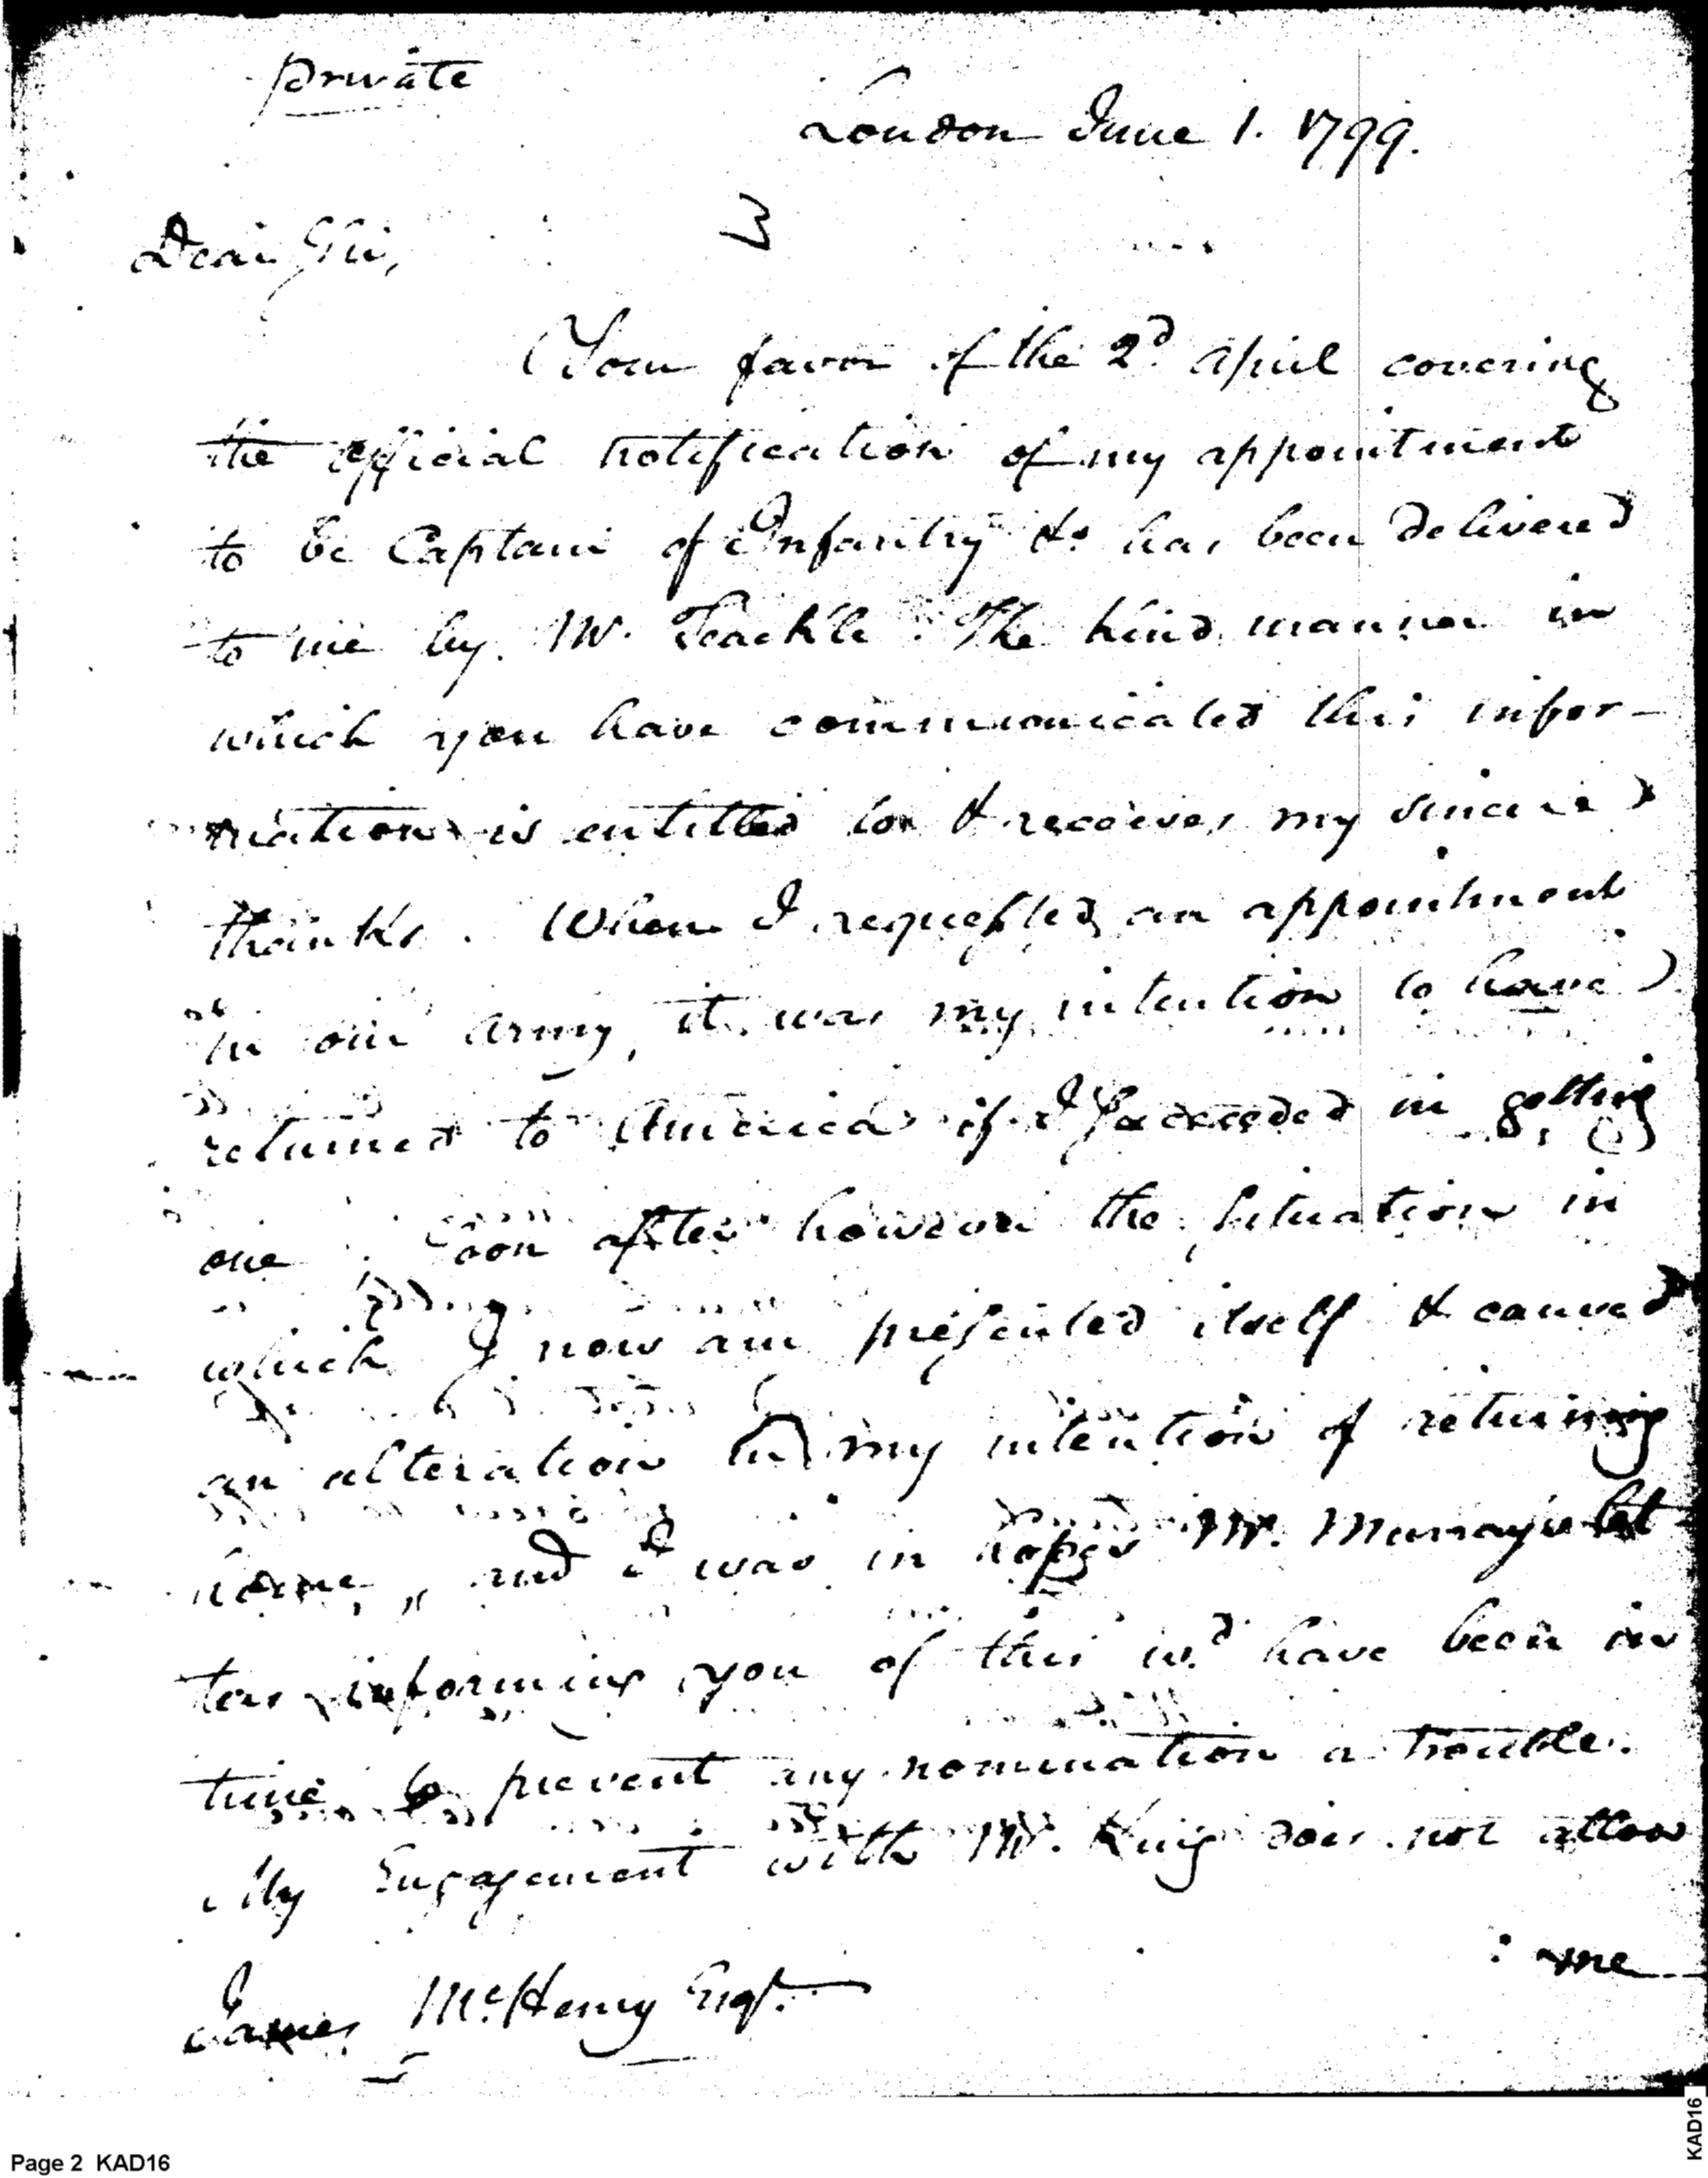 private
London June 1. 1799.
3
Dear Sir,
Your favor of the 2d April covering
the official notification of my appointment
to be Captain of Infantry &c has been delivered
to me by Mr. Teackle. The kind manner in
which you have communicated this infor-
mation is entitled to & receives my sincere
thanks. When I requested an appointment
in our army, it was my intention to have
returned to America if I succeeded in getting
one. Soon after however the situation in
which I now am presented itself & caused
an alteration in my intention of returning
home, and I was in hopes Mr. Murray's let
ter informing you of this wd have been in
time to prevent any nomination a trouble.
My Engagement with Mr. King does not allow
me
James McHenry Esqr.
Page 2 KAD16
KAD16